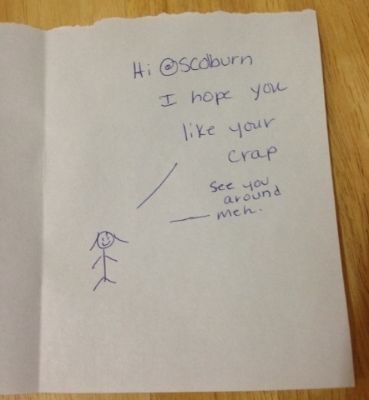 Hi @scolburn
I hope you
like your
crap
See you
around
meh.